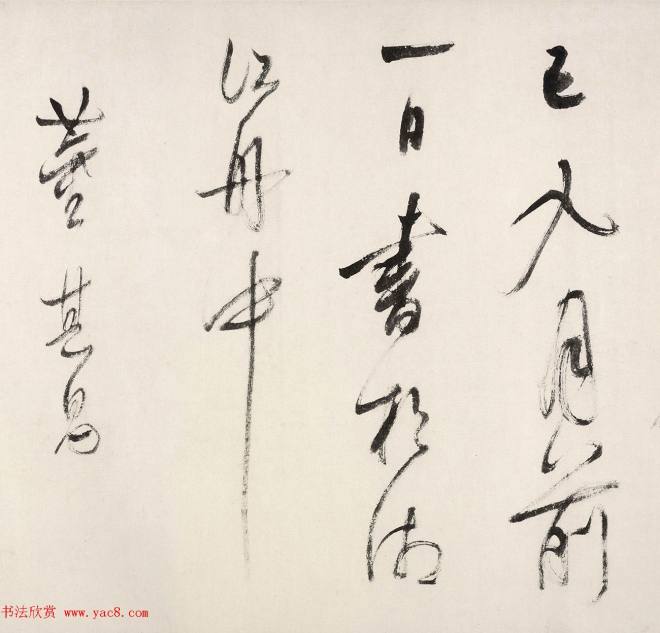 巳九月前
一日書於清
江舟中
董其昌
书法欣赏 www.yac8.com